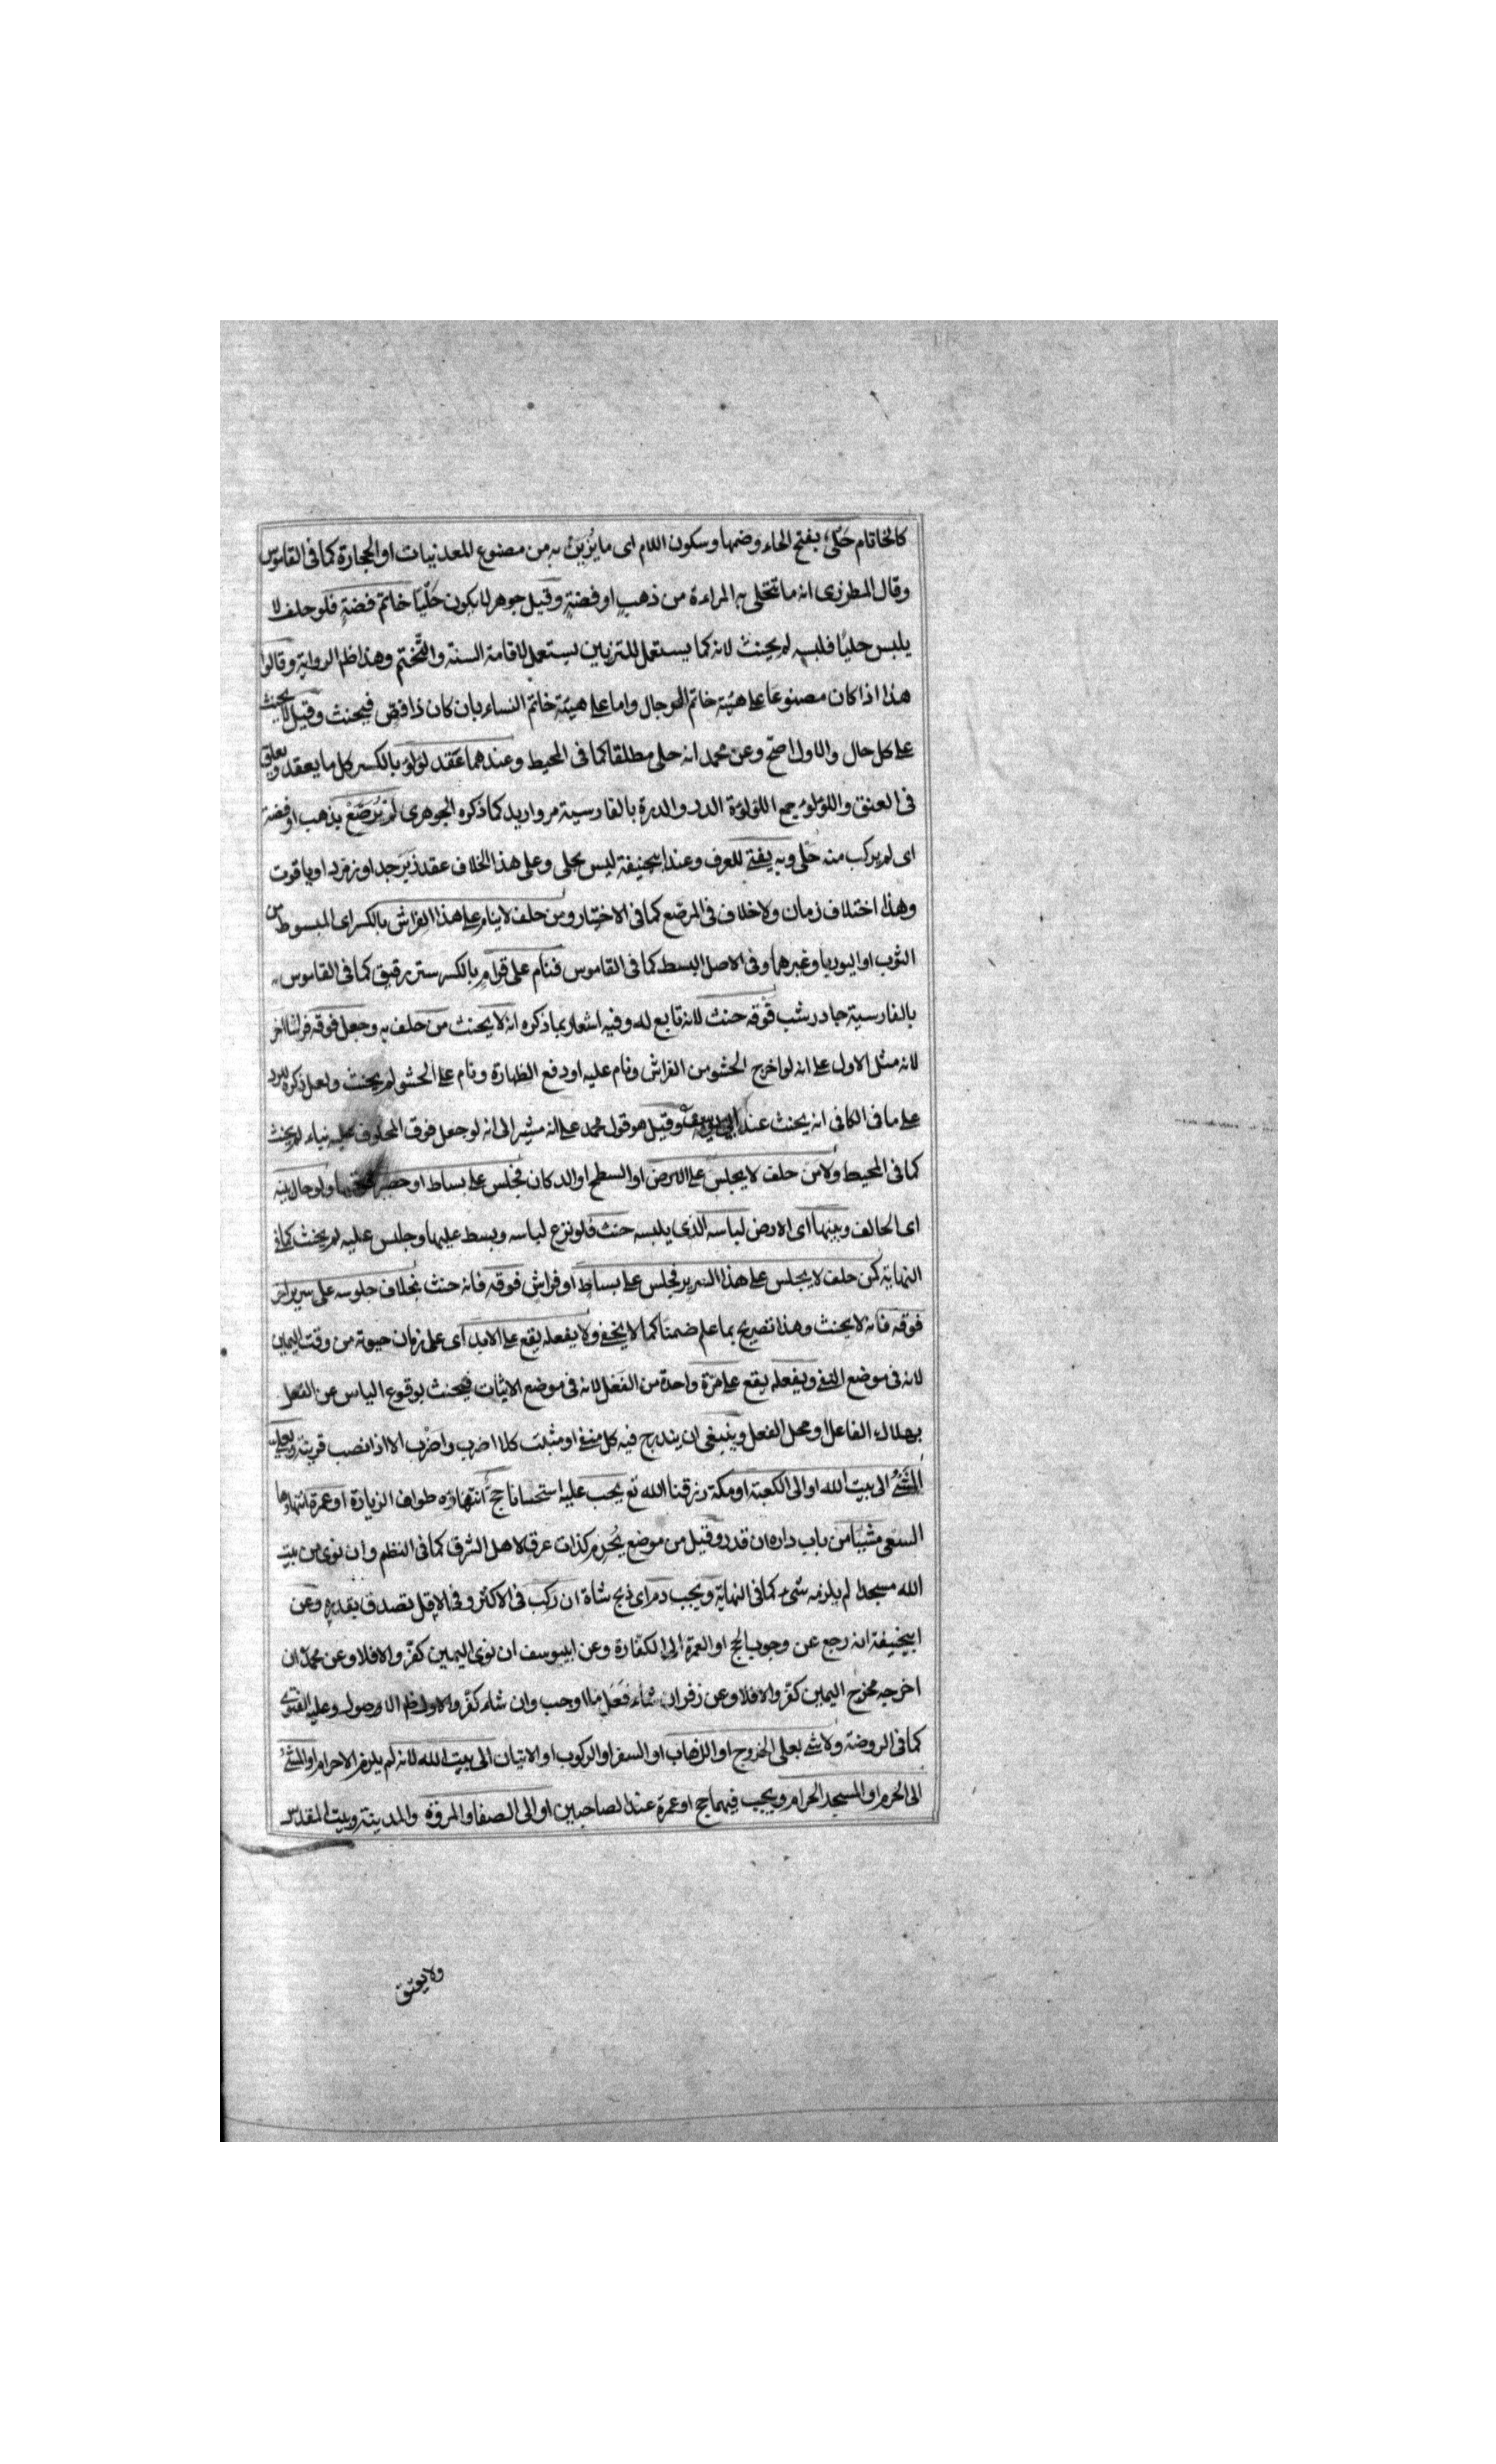 كالخاتام حَلْي بفتح الحاء وضمها وسكون اللام اى ما يُزَيَّن به من مصنوع المعدنيات او الحجارة كما فى القاموس
وقال المطرزى انه ما تتحلى به المراءة من ذهب او فضة وقيل جوهر لا يكون حَلْيًا خاتم فضة فلو حلف لا
يلبس حليًا فلبسه لم يحنث لانه كما يستعمل للتزيين يستعمل لاقامة السنة والتختم وهذا ظم الرواية وقالوا
هذا اذا كان مصنوعا على هيئة خاتم الرجال واما على هيئة خاتم النساء بان كان ذا فصّ فيحنث وقيل لا يحنث
على كل حال والاول اصح وعن محمد انه حلى مطلقا كما فى المحيط وعندهما عَقد لؤلؤ بالكسر كل ما يعقد ويعلق
فى العنق واللؤلؤ جمع اللؤلؤة الدر والدرة بالفارسية مرواريد كما ذكره الجوهرى لم يُرَصّعْ بذهب او فضة
اى لم يركب منه حَلى وبه يفتى للعرف وعند ابيحنيفة ليس بحلى وعلى هذا الخلاف عقد زبرجد او زمرد او ياقوت
وهذا اختلاف زمان ولا خلاف فى المرصع كما فى الاختيار ومن حلف لا ينام على هذا الفراش بالكسر اى المبسوط من
الثوب او البوريا وغيرهما وفى الاصل البسط كما فى القاموس فنام على قرام بالكسر ستر رقيق كما فى القاموس
بالفارسية جادر شب فوقه حنث لانه تابع له وفيه اشعار بما ذكره انه لا يحنث من حلف به وجعل فوقه فراشا اخر
لانه مثل الاول على انه لو اخرج الحشو من الفراش ونام عليه او رفع الظهارة ونام على الحشو لم يحنث ولعل ذكره لرد
على ما فى الكافى انه يحنث عند ابى يوسف وقيل هو قول محمد على انه مشير الى انه لو جعل فوق المحلوف عليه لم يحنث
كما فى المحيط ولا من حلف لا يجلس على الارض او السطح او الدكان فجلس على بساط او حصير فوقها ولو حال بينه
اى الحالف وبينها اى الارض لباسه الذى يلبسه حنث فلو نزع لباسه وبسط عليها وجلس عليه لم يحنث كما فى
النهاية كمن حلف لا يجلس على هذا السرير فجلس على بساط او فراش فوقه فانه حنث بخلاف جلوسه على سرير اخر
فوقه فانه لا يحنث وهذا تصريح بما علم ضمنا كما لا يخفى ولا يفعله يقع على الابد اى على زمان حيوته من وقت اليمين
لانه فى موضع النفى ويفعله يقع على مرّة واحدة من الفعل لانه فى موضع الاثبات فيحنث بوقوع الياس عن الفعل
بهلاك الفاعل او محل الفعل وينبغى ان يندرج فيه كل منفى او مثبت كلا اضرب واضرب الا اذا نصب قرينة وبعلى
المشى الى بيت الله او الى الكعبة او مكة رزقنا الله تع يجب عليه استحسانا حج انتهاؤه طواف الزيارة او عمرة انتهاؤها
السعى مشيا من باب داره ان قدر وقيل من موضع يُحرم كذات عرق لاهل الشرق كما فى النظم وان نوى من بيت
الله مسجدا لم يلزمه شىء كما فى النهاية ويجب دم اى ذبح شاة ان ركب فى الاكثر وفى الاقل تصدق بقدره وعن
ابيحنيفة انه رجع عن وجوب الحج او العمرة الى الكفارة وعن ابيوسف ان نوى اليمين كفّر والا فلا وعن محمد ان
اخرجه مخرج اليمين كفر والا فلا وعن زفر ان شاء فَعَل ما اوجب وان شاء كفّر والاول ظم الاصول وعليه الفتوى
كما فى الروضة ولا شى بعلى الخروج او الذهاب او السفر او الركوب او الاتيان الى بيت الله لانه لم يلزم الاحرام او المشى
الى الحرم او المسجد الحرام ويجب فيهما حج او عمرة عند الصاحبين او الى الصفا والمروة والمدينة وبيت المقدس
ولا يعتق